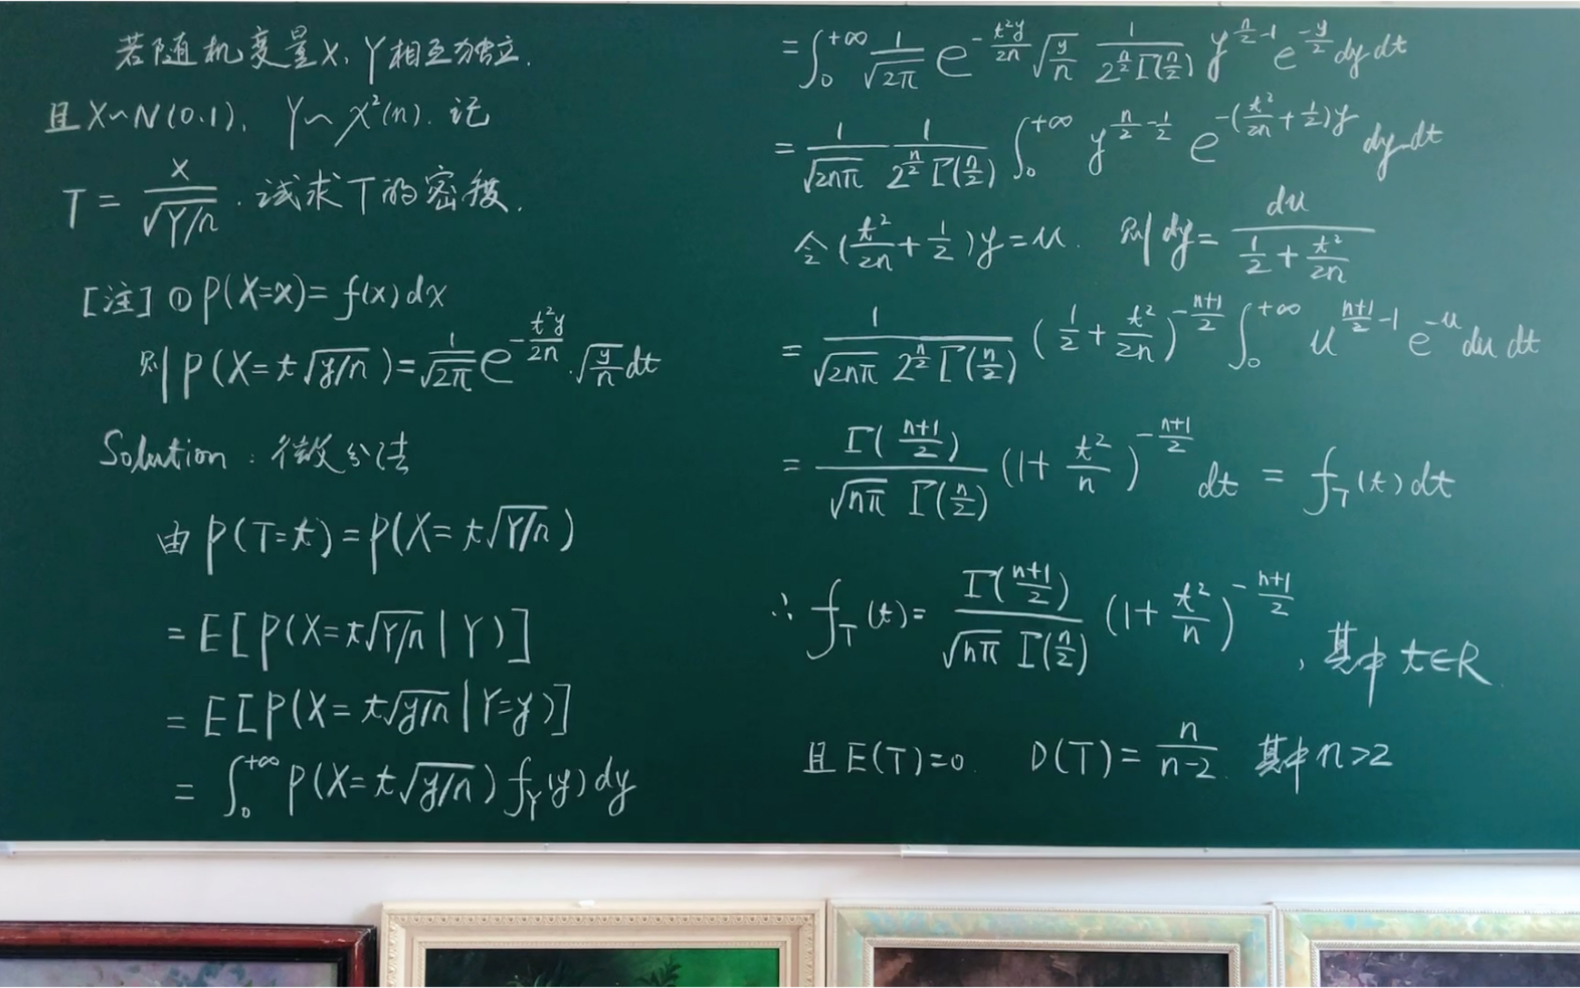 若随机变量X、Y相互独立.
且X~N(0.1), Y~χ²(n). 记
T = X/√(Y/n) . 试求T的密度.
[注] ① P(X=x) = f(x)dx
则 P(X=t√(y/n)) = 1/√(2π) e^(-t²y/2n) · √(y/n) dt
Solution : 微分法
由 P(T=t) = P(X=t√(Y/n))
= E[P(X=t√(Y/n) | Y)]
= E[P(X=t√(y/n) | Y=y)]
= ∫₀^(+∞) P(X=t√(y/n)) f_Y(y) dy
= ∫₀^(+∞) 1/√(2π) e^(-t²y/2n) √(y/n) 1/(2^(n/2) Γ(n/2)) y^(n/2-1) e^(-y/2) dy dt
= 1/√(2nπ) 1/(2^(n/2) Γ(n/2)) ∫₀^(+∞) y^(n/2-1/2) e^(-(t²/2n+1/2)y) dy dt
令 (t²/2n + 1/2)y = u. 则 dy = du/(1/2 + t²/2n)
= 1/(√(2nπ) 2^(n/2) Γ(n/2)) (1/2 + t²/2n)^(-(n+1)/2) ∫₀^(+∞) u^((n+1)/2-1) e^(-u) du dt
= Γ((n+1)/2)/(√(nπ) Γ(n/2)) (1 + t²/n)^(-(n+1)/2) dt = f_T(t) dt
∴ f_T(t) = Γ((n+1)/2)/(√(nπ) Γ(n/2)) (1 + t²/n)^(-(n+1)/2) , 其中 t∈R
且 E(T)=0. D(T) = n/(n-2). 其中 n>2